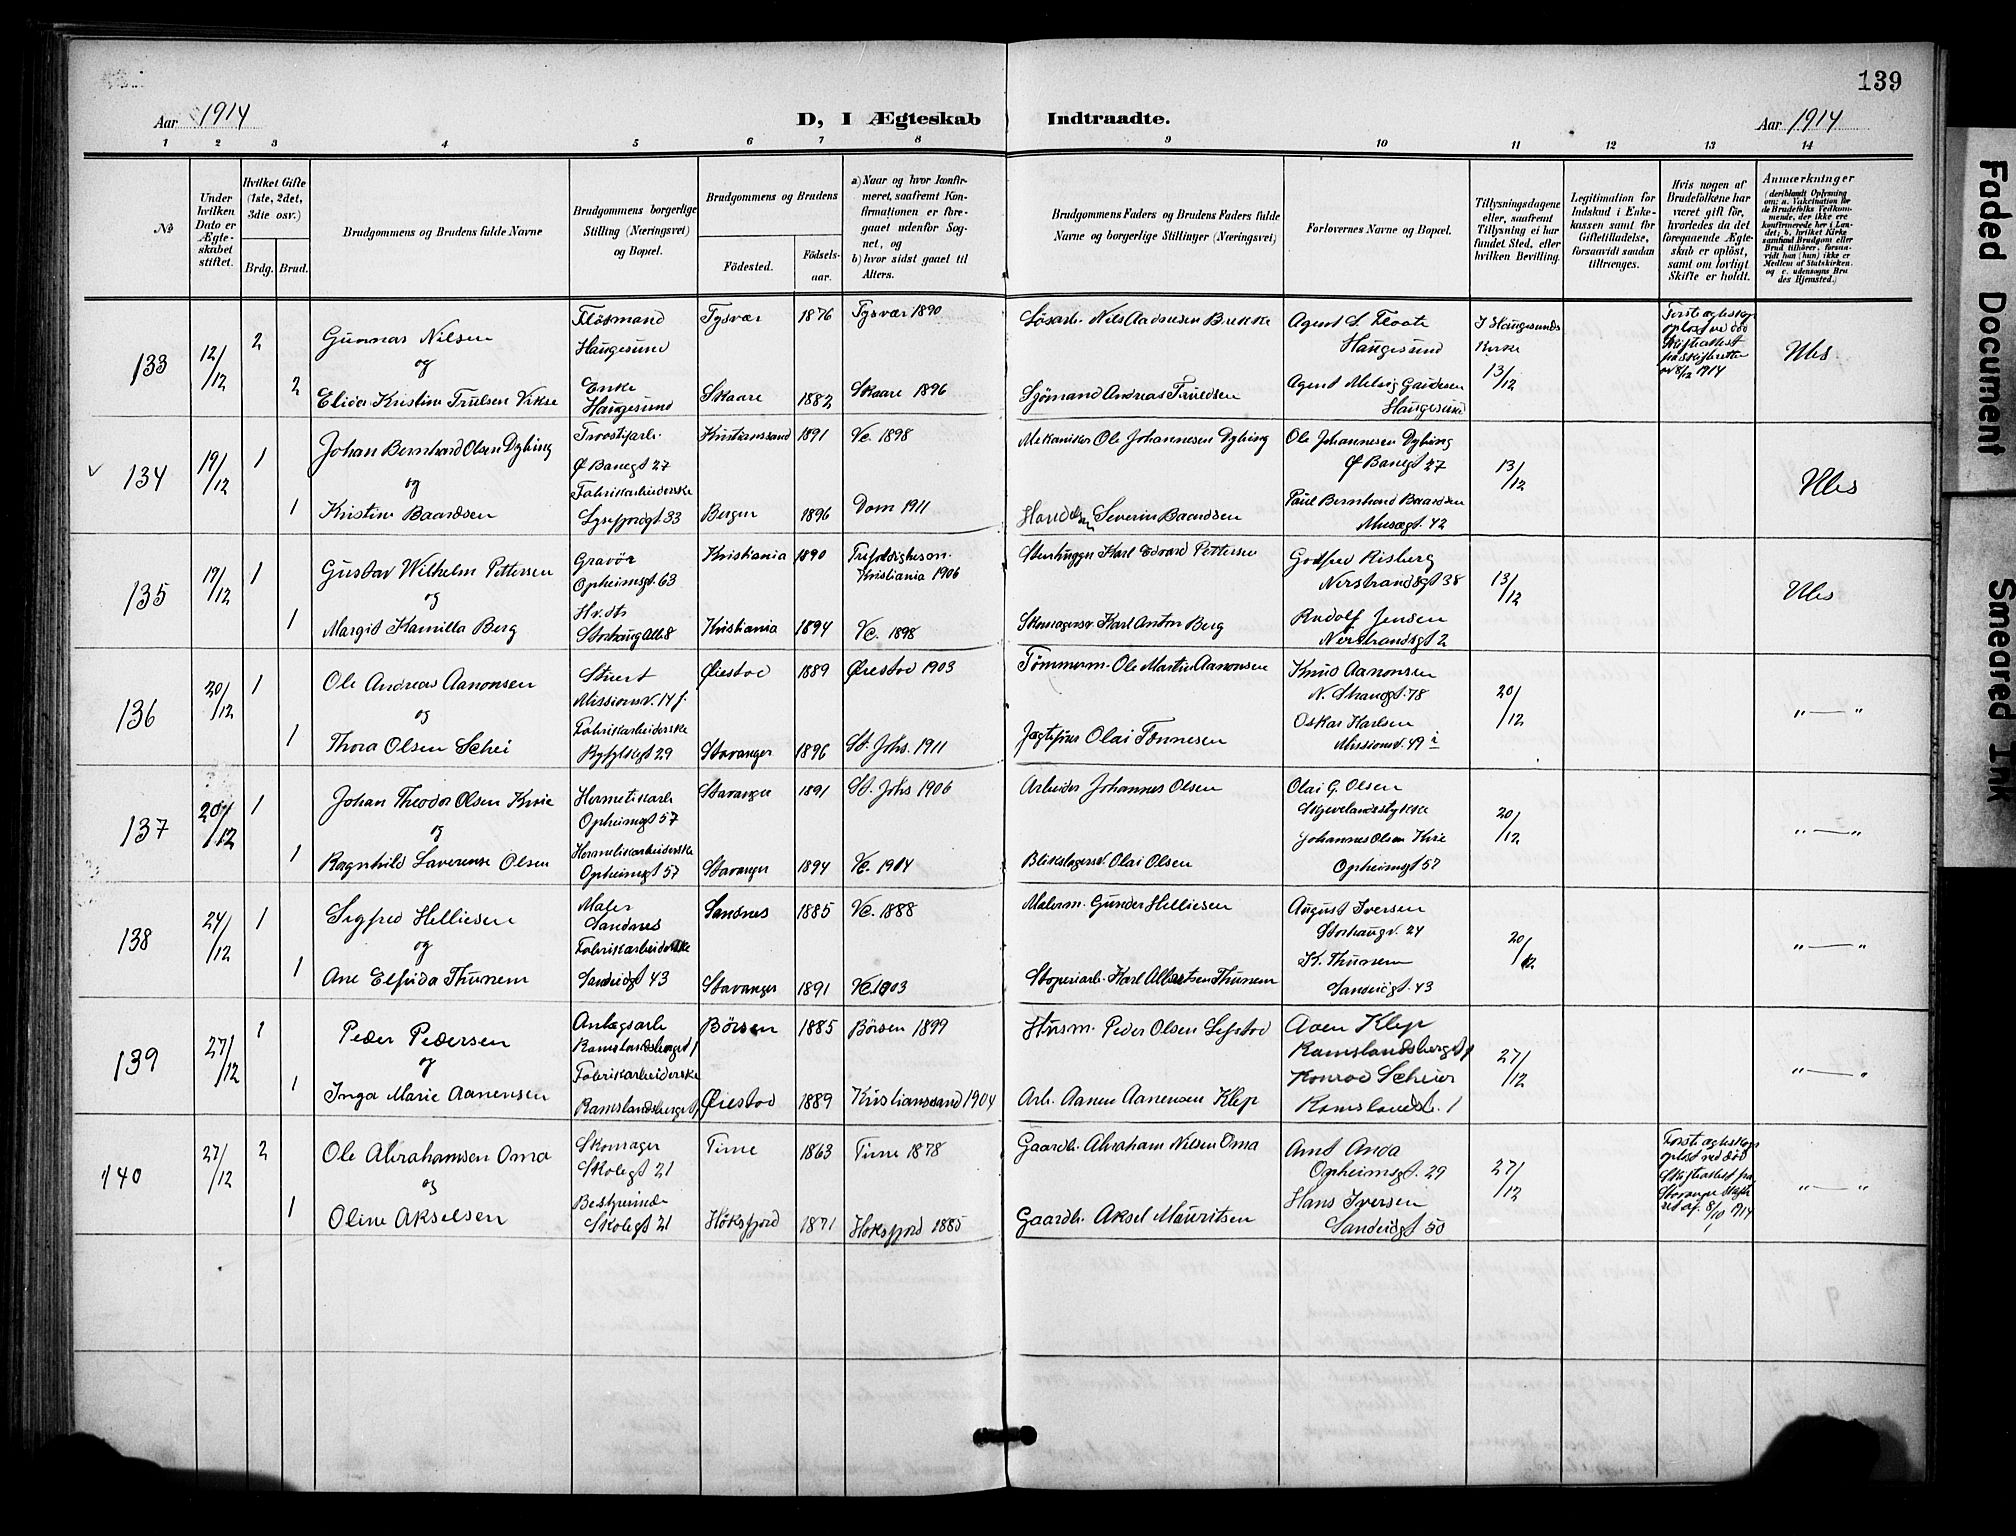 139
Aar 1914 D, I Ægteskab Indtraadte. Aar 1914
1 2 3 4 5 6 7 8 9 10 11 12 13 14
№
Under hvilken Dato er Ægteskabet stiftet.
Hvilket Gifte (1ste, 2det, 3die osv.)
Brdg. Brud.
Brudgommens og Brudens fulde Navne
Brudgommens borgerlige Stilling (Næringsvei) og Bopæl.
Brudgommens og Brudens
Födested. Födselsaar.
a) Naar og hvor konfirmeret, saafremt Konfirmationen er foregaaet udenfor Sognet, og
b) hvor sidst gaaet til Alters.
Brudgommens Faders og Brudens Faders fulde Navne og borgerlige Stillinger (Næringsvei)
Forlovernes Navne og Bopæl.
Tillysningsdagene eller, saafremt Tillysning ei har fundet Sted, efter hvilken Bevilling.
Legitimation for Indskud i Enkekassen samt for Giftetilladelse, forsaavidt saadan tiltrænges.
Hvis nogen af Brudefolkene har været gift før, hvorledes da det foregaaende Ægteskab er oplöst, samt om lovligt Skifte er holdt.
Anmærkninger
(deriblandt Oplysning om: a. Vakcination for de Brudefolks Vedkommende, der ikke ere konfirmerede her i Landet; b. hvilket Kirkesamfund Brudgom eller Brud tilhører, forsaavidt han (hun) ikke er Medlem af Statskirken. og c. udensogns Brudes Hjemsted.)
133 12/12 2 Gunnar Nilsen Haugesund Tysvær 1876 Tysvær 1890 Nils Andresen Brekke Agent S. Floate Haugesund I Haugesunds Kirke 13/12
og
2 Kristine Trulsen Vikse Enke Haugesund Skaare 1882 Skaare 1896 Sjømand Andreas Agent Haugesund
Første oplöst ved död 8/12 1914
134 19/12 1 Johan Bernhard Olsen Dybing Ø Banegt 27 Kristianssand 1891 Vc. 1898 Mekaniker Ole Johannesen Dybing Ole Johannesen Dybing Ø Banegt 27 13/12
og
1 Kristine Baardsen Fabrikarbeiderske Lysefjordgt 33 Bergen 1896 Dom 1911 Severin Baardsen Paul Bernhard Baardsen Musægt. 42
135 19/12 1 Gustav Wilhelm Pettersen Gravör Opheimsgt 63 Kristiania 1890 Kristiania 1906 Stenhugger Karl Edvard Pettersen Godfred Risberg Nerstrandsgt 38 13/12
og
1 Margit Kamilla Berg Storhaug Alle 8 Kristiania 1894 Vc. 1898 Karl Anton Berg Rudolf Jensen Nerstrandsgt 2
136 20/12 1 Ole Andreas Aanonsen Stuert Missionsv. 14 f. Øiestad 1889 Øiestad 1903 Tømmerm. Ole Martin Aanonsen Knud Aanonsen N. Strandgt. 78 20/12 " — "
og
1 Thora Olsen Schei Fabrikarbeiderske Ryfylkegt 29 Stavanger 1896 St. Johs. 1911 Olai Tønnesen Oskar Karlsen Missionsv. 49 i
137 20/12 1 Johan Theodor Olsen Kvie Hermetikarb Opheimgt 57 Stavanger 1891 St. Johs 1906 Arbeider Johannes Olsen Olai G. Olsen Skjevelandsstykke 20/12 " — "
og
1 Ragnhild Laverense Olsen Hermetikarbeiderske Opheimgt 57 Stavanger 1894 Vc. 1904 Olai Olsen Johannes Olsen Kvie Opheimgt 57
138 24/12 1 Sigfred Helliesen Maler Sandnes Sandnes 1885 Vc. 1888 Malerm. Gunder Helliesen August Iversen Storhaugv. 24 20/12 " — "
og
1 Ane Elfrida Thunem Fabrikarbeiderske Sandeidgt 43 Stavanger 1891 Vc. 1903 Støperiarb. Karl Albertsen Thunem K. Thunem Sandeidgt. 43
139 27/12 1 Peder Pedersen Anlægsarb Ramslandsberget 1 Börsen 1885 Börsen 1899 Husm. Peder Olsen Aaen Klep Ramslandsberget 1 27/12 " — "
og
1 Inga Marie Aanensen Fabrikarbeiderske Ramslandsberget 1 Øiestad 1889 Kristianssand 1904 Arb. Aanen Aanensen Klep Konrad Scheier 1
140 27/12 2 Ole Abrahamsen Oma Skomager Skolegt 21 Time 1863 Time 1878 Gaardb. Abraham Nilsen Oma Arnt Anda Opheimsgt. 29 27/12 " — "
og
1 Oline Akselsen Bestyrerinde Skolegt 21 Høksfjord 1871 Høksfjord 1885 Gaardb. Aksel Mauritsen Hans Iversen Sandeidgt 50
Første oplöst ved död Skifteattest fra Stavanger 8/10 1914
Faded Document
Smeared Ink